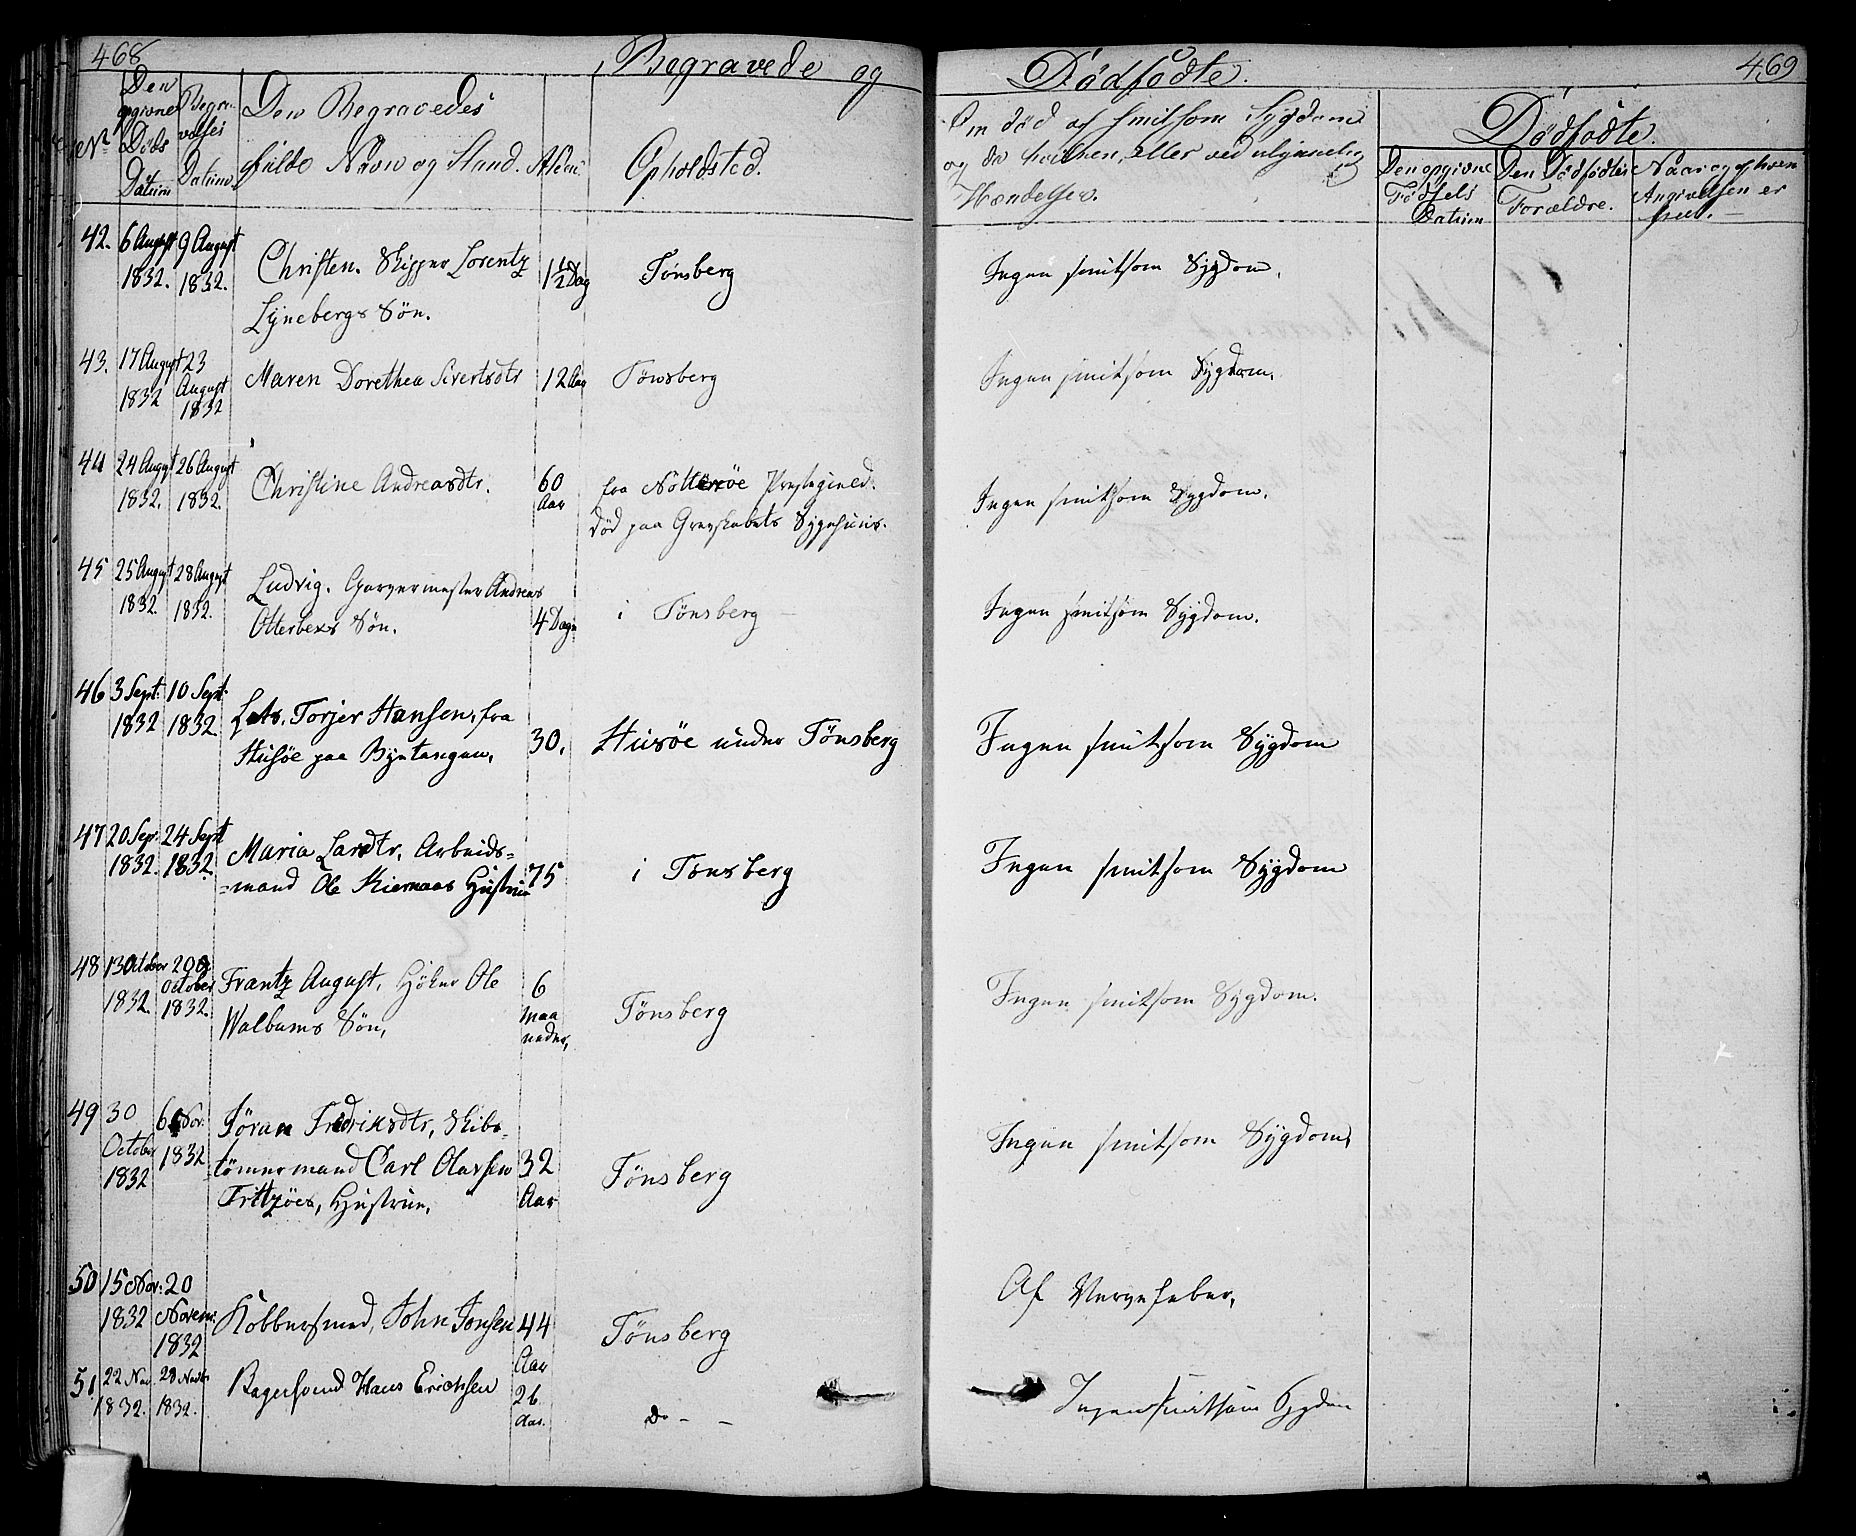 468
Begravede og
Dødfødte.
469
No
Den opgivne Døds Datum
Begravelses Datum.
Den Begravedes fulde Navn og Stand.
Alder
Opholdsted.
Om død af smitsom Sygdom
og da hvilken, eller ved ulykkelig
Hændelse.
Dødfødte.
Den opgivne Fødsels Datum
Den Dødfødtes Forældre.
Naar og af hvem Angivelsen er skeet.
42. 6 August 9 August
1832. 1832.
Christen. Skipper Lorentz
Lynebergs Søn.
1½ Dag
Tønsberg
Ingen smitsom Sygdom.
43. 17 August 23
1832 August
1832
Maren Dorethea Sivertsdtr
12 Aar
Tønsberg
Ingen smitsom Sygdom.
44 24 August 26 August
1832. 1832.
Christine Andreasdtr.
60
Aar
fra Nøtterøe Præstegield.
død paa Grevskabets Sygehuus.
Ingen smitsom Sygdom.
45 25 August 28 August
1832. 1832.
Ludvig. Garvermester Andreas
Otterbecs Søn.
4 Dage
i Tønsberg
Ingen smitsom Sygdom.
46 3 Sept: 10 Sept:
1832 1832
Lots. Torjer Hansen, fra
Husøe paa Byetangen,
30.
Husøe under Tønsberg
Ingen smitsom Sygdom
47 20 Sep: 24 Sept
1832. 1832
Maria Larsdtr, Arbeids=
=mand Ole Kiernaas Hustrue
75
i Tønsberg
Ingen smitsom Sygdom
48 13 October 20
1832. October
1832.
Frantz August, Høker Ole
Walbums Søn,
6
Maa
neder,
Tønsberg
Ingen smitsom Sygdom.
49 30 6 Nov:
October 1832
1832
Jøran Fredriksdtr, Skibs=
tømmermand Carl Olavsen
Fritzøes, Hustrue,
32
Aar
Tønsberg
Ingen smitsom Sygdom,
50 15 Nov: 20
1832 Novem:
1832
Kobbersmed, John Jonsen
44
Aar
Tønsberg
Af Nervefeber,
51 22 Nov 28 Novbr
1832. 1832.
Bagersvend Hans Erichsen
26
Aar.
Do - -
Ingen smitsom Sygdom